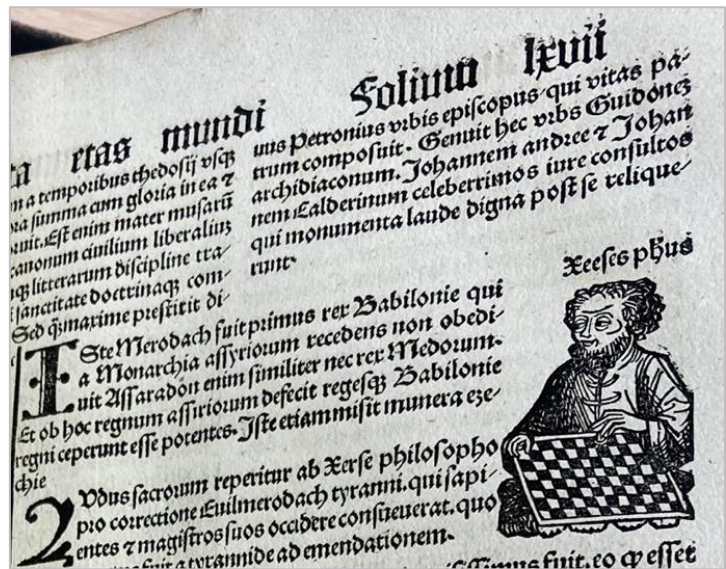 ta etas mundi Folium lxvii
m a temporibus thedosij vsqꝫ
ra summa cum gloria in ea ⁊
ruit. Est enim mater musarū
canonum ciuilium liberaliuꝫ
qꝫ litterarum discipline tra-
sanctitate doctrinaqꝫ com-
Sed qꝫmaxime prestitit di-
uus Petronius vrbis episcopus qui vitas pa-
trum composuit. Genuit hec vrbs Guidoneꝫ
archidiaconum. Johannem andree ⁊ Johan
nem Calderinum celeberrimos iure consultos
qui monumenta laude digna post se relique-
runt.
Xerses phūs
ISte Merodach fuit primus rex Babilonie qui
a Monarchia assyriorum recedens non obedi-
uit Assaradon enim similiter nec rex Medorum.
Et ob hoc regnum assiriorum defecit regesqꝫ Babilonie
regni ceperunt esse potentes. Iste etiam misit munera eze-
chie
LVdus sacrorum reperitur ab Xerse philosopho
pro correctione Euilmerodach tyranni. qui sapi-
entes ⁊ magistros suos occidere consueuerat. quo
fuit a tyrannide ad emendationem.
fuit. eo ꝙ esset